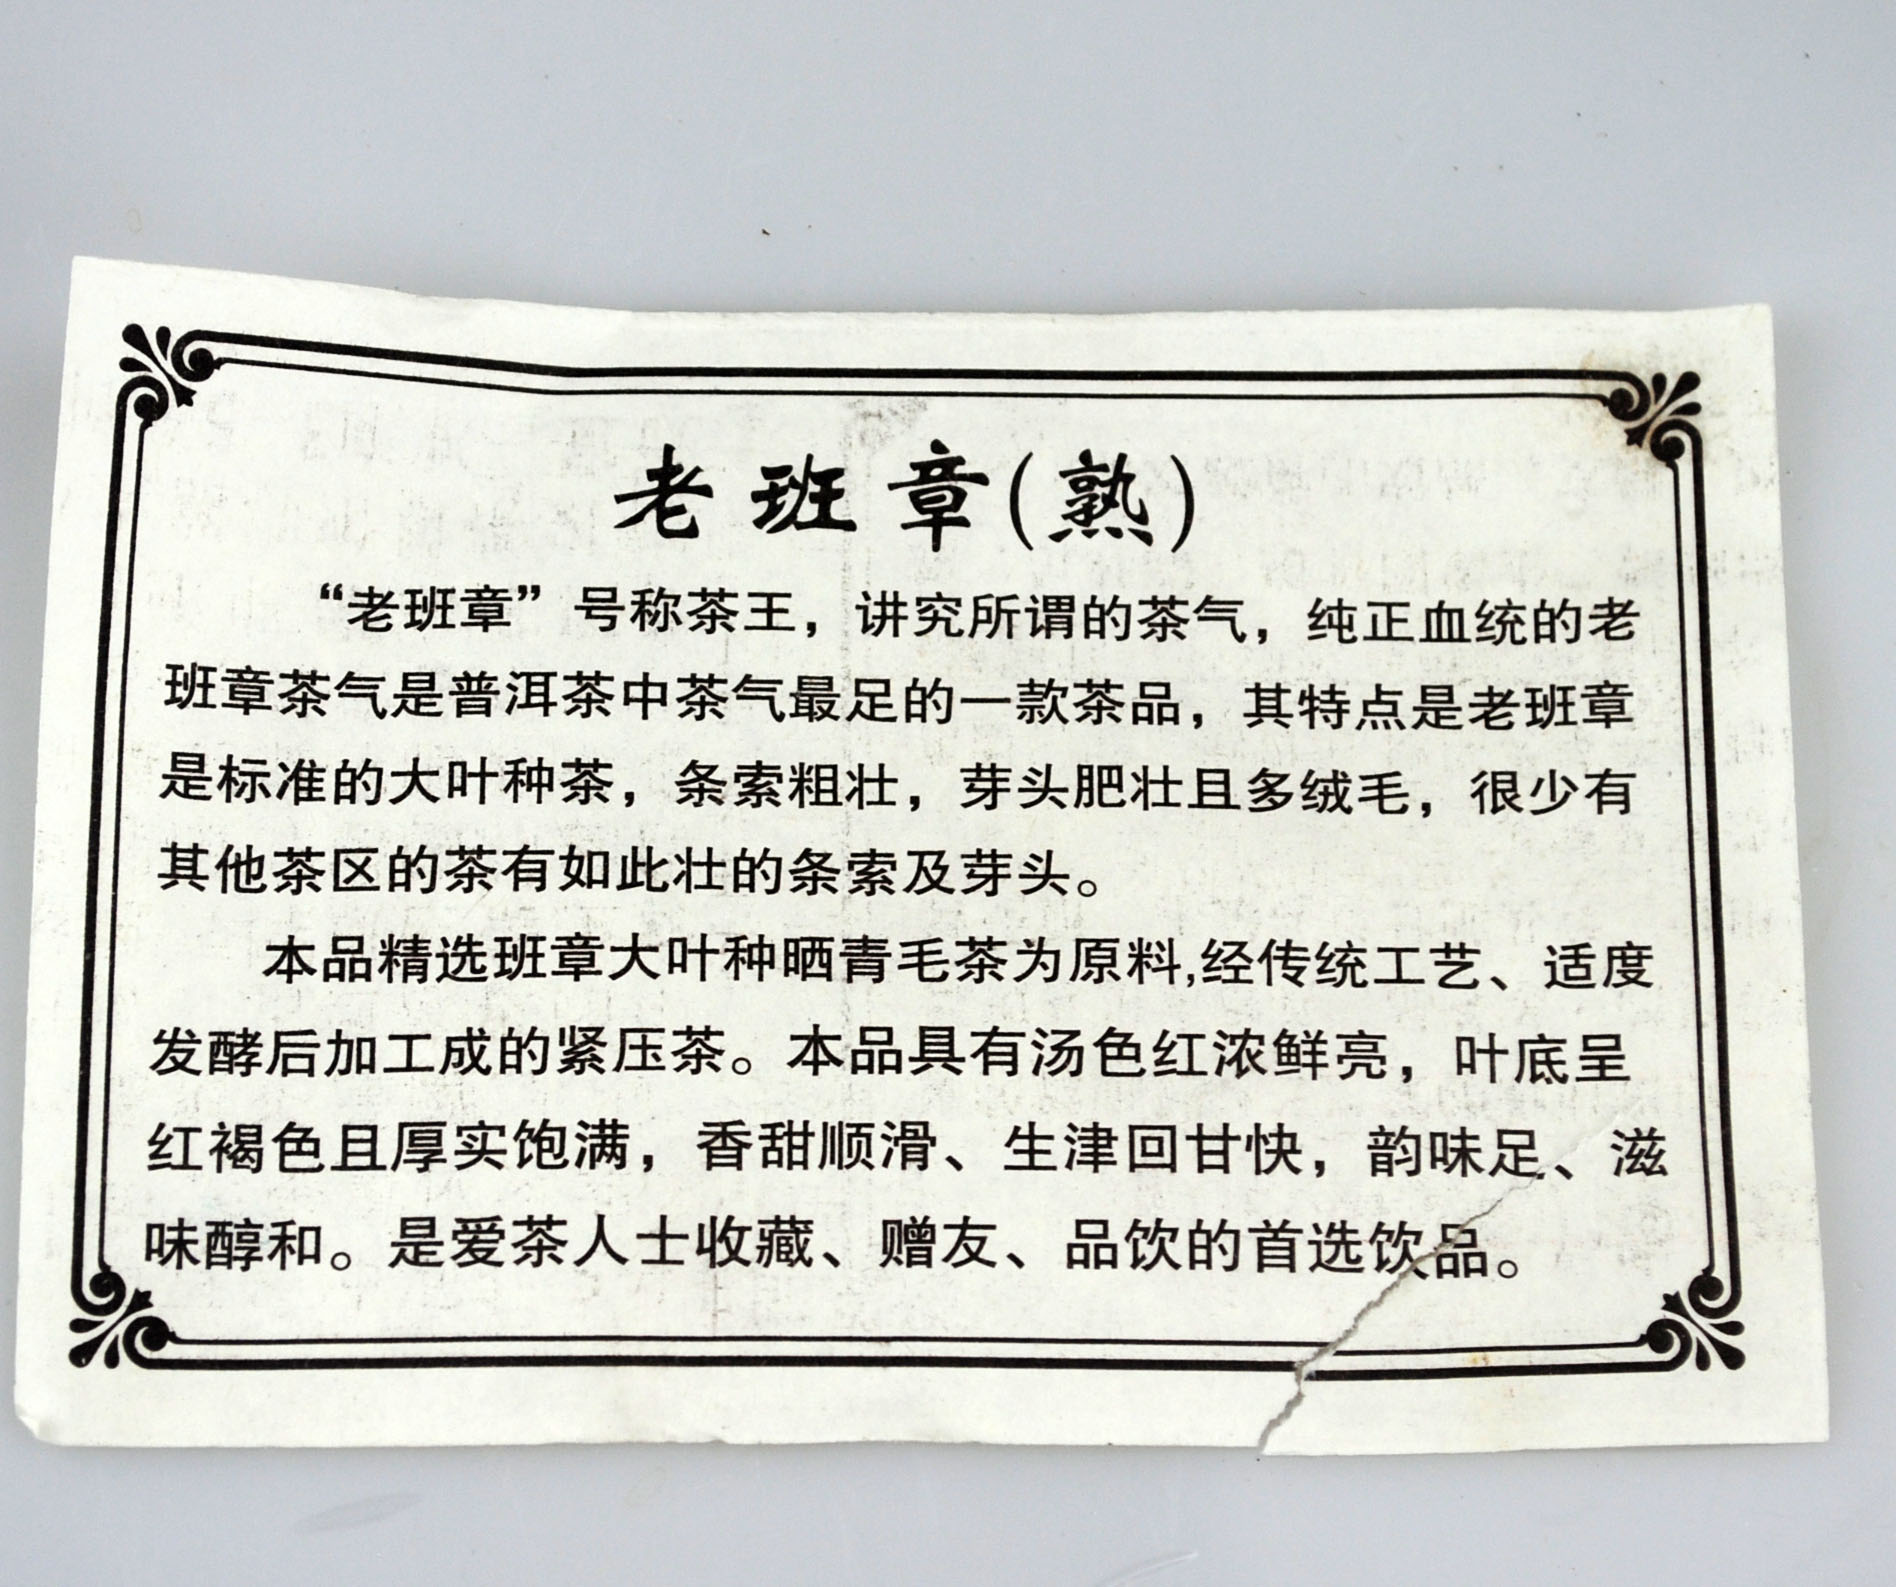 老班章(熟)
“老班章”号称茶王，讲究所谓的茶气，纯正血统的老
班章茶气是普洱茶中茶气最足的一款茶品，其特点是老班章
是标准的大叶种茶，条索粗壮，芽头肥壮且多绒毛，很少有
其他茶区的茶有如此壮的条索及芽头。
本品精选班章大叶种晒青毛茶为原料,经传统工艺、适度
发酵后加工成的紧压茶。本品具有汤色红浓鲜亮，叶底呈
红褐色且厚实饱满，香甜顺滑、生津回甘快，韵味足、滋
味醇和。是爱茶人士收藏、赠友、品饮的首选饮品。